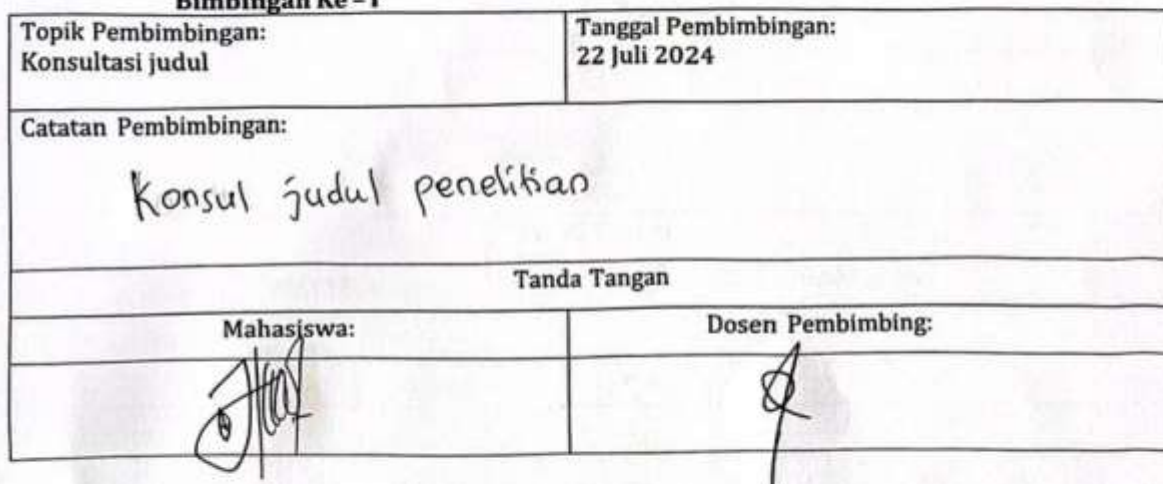 Bimbingan Ke – 1
Topik Pembimbingan:
Konsultasi judul
Tanggal Pembimbingan:
22 Juli 2024
Catatan Pembimbingan:
Konsul judul penelitian
Tanda Tangan
Mahasiswa:
Dosen Pembimbing: